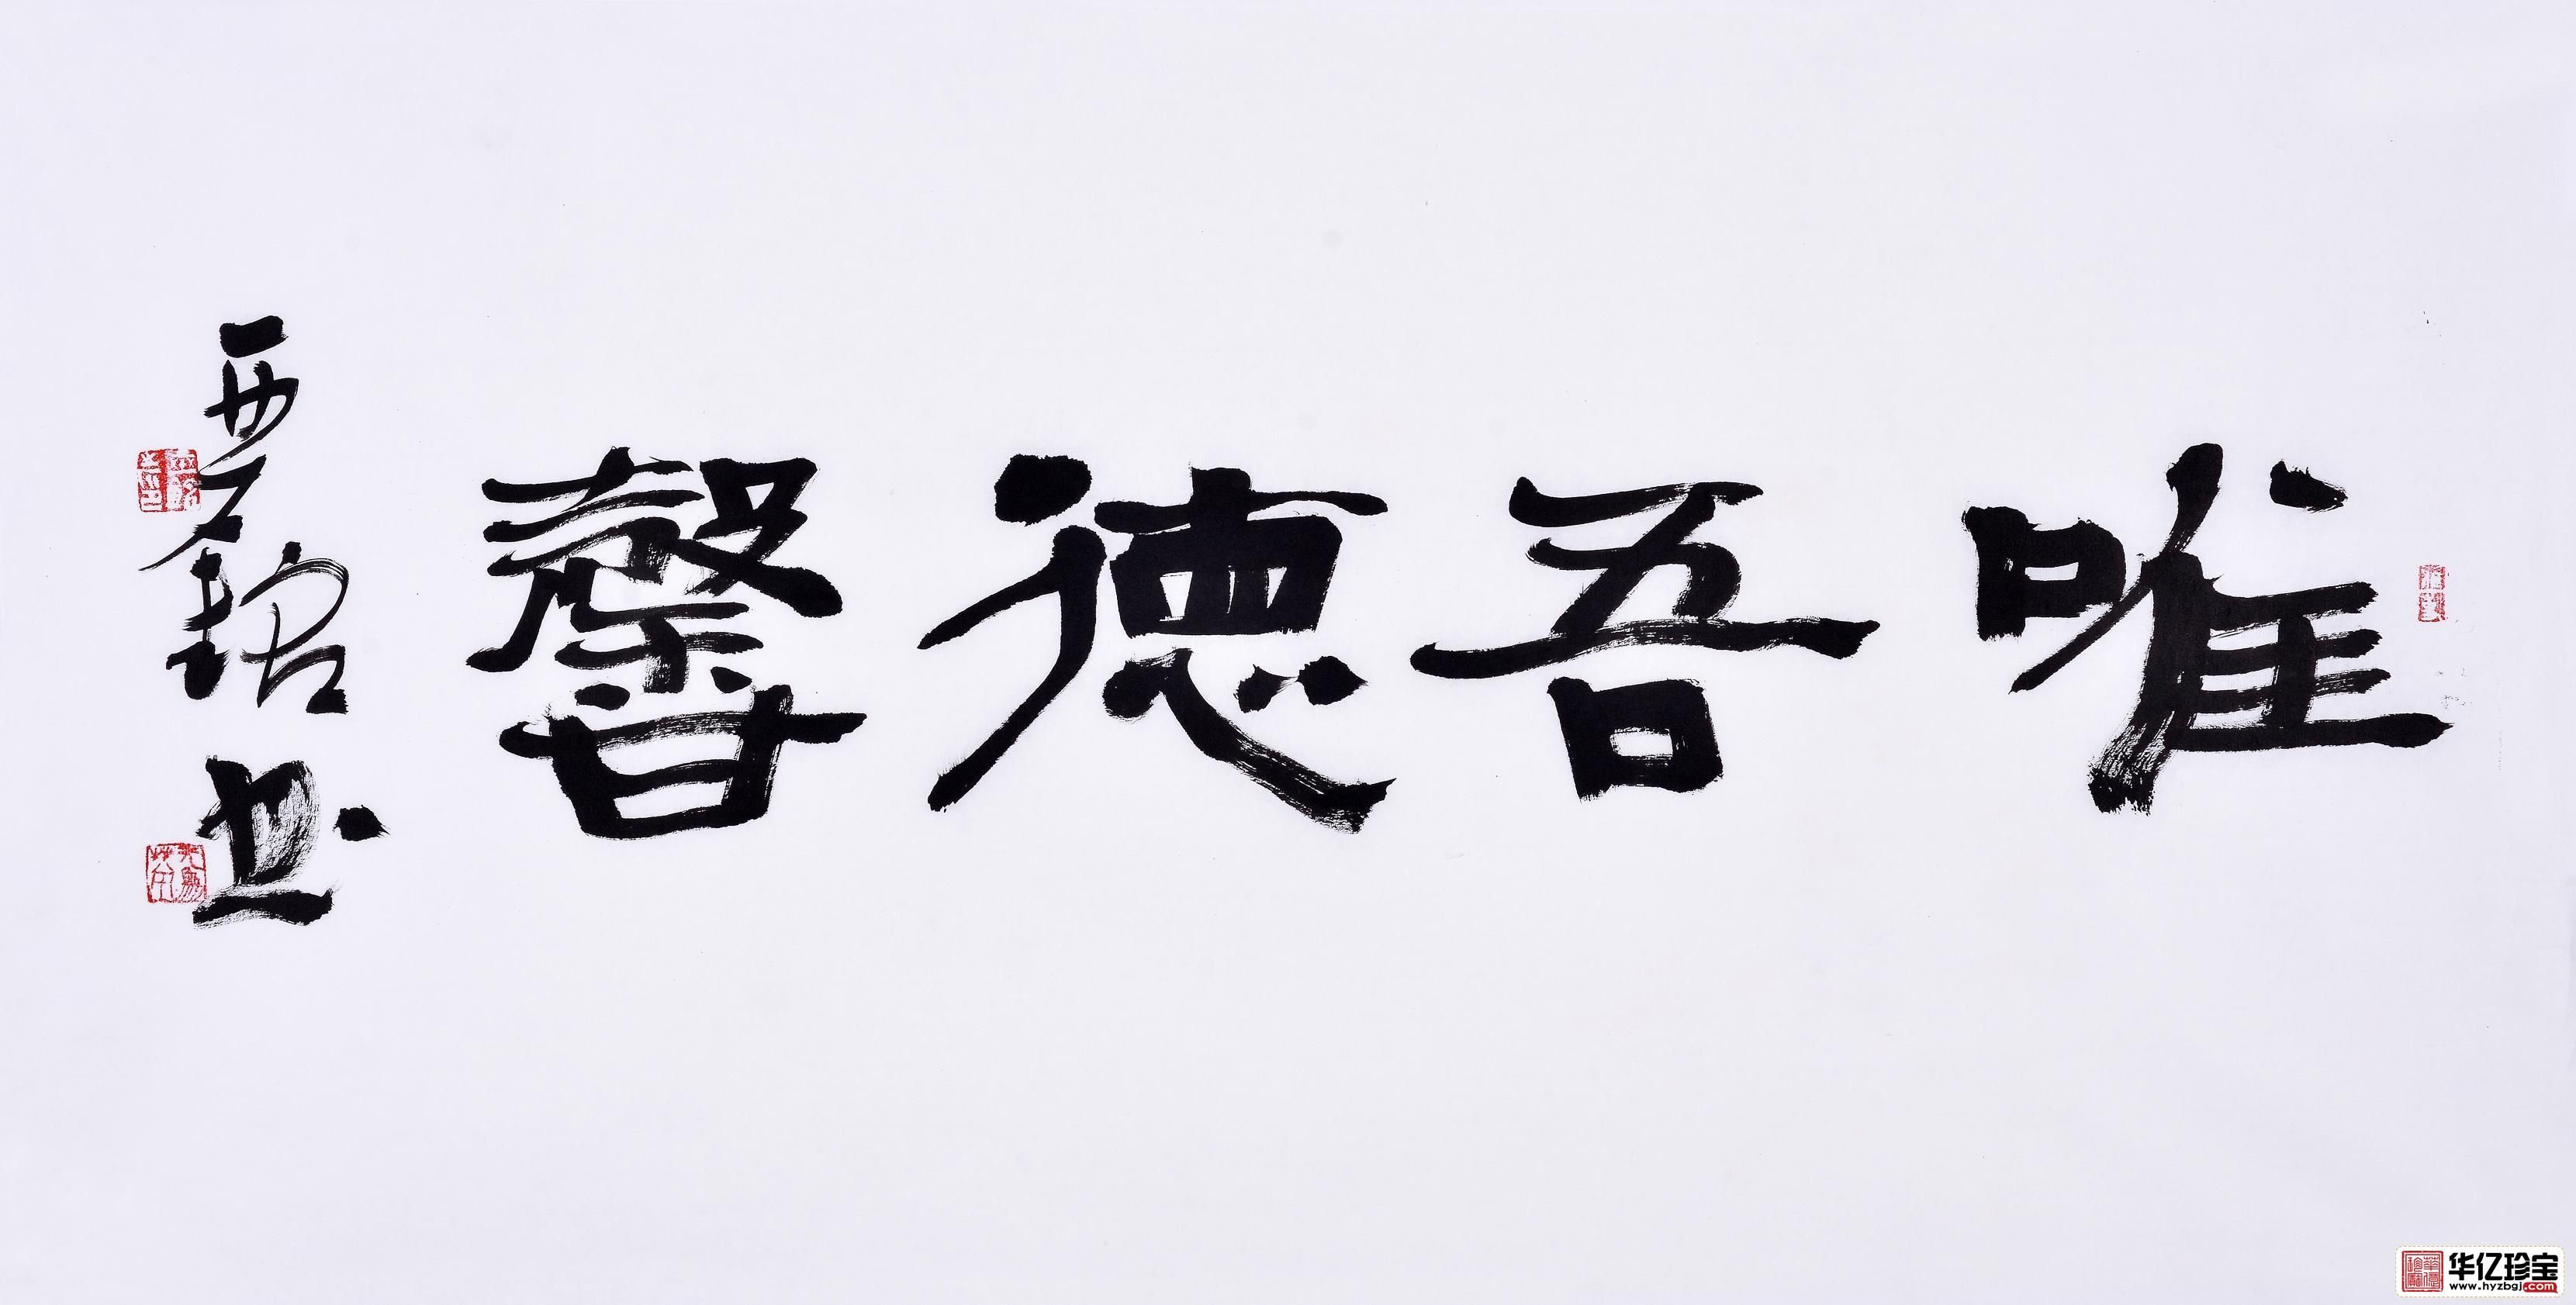 唯吾德馨
华亿珍宝
www.hyzbgj.com